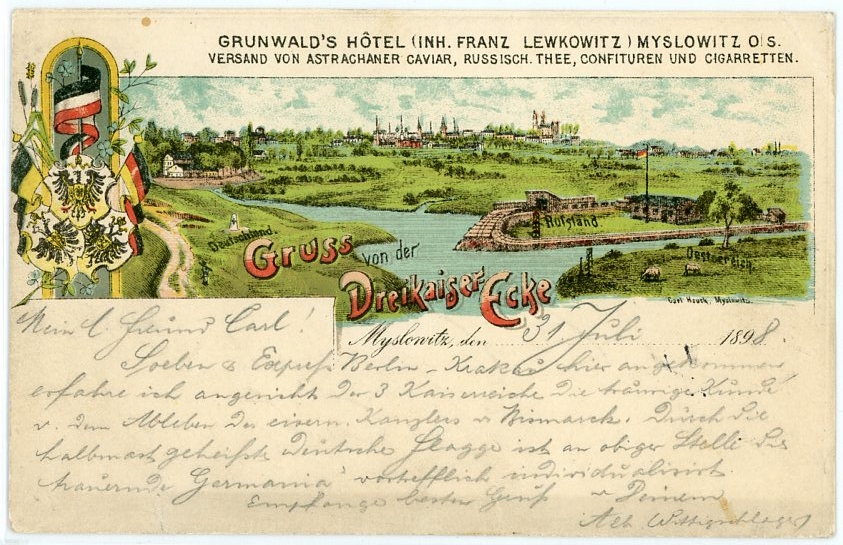 GRUNWALD'S HÔTEL (INH. FRANZ LEWKOWITZ) MYSLOWITZ O|S.
VERSAND VON ASTRACHANER CAVIAR, RUSSISCH. THEE, CONFITUREN UND CIGARRETTEN.
Deutschland.
Rußland.
Oesterreich.
Gruss von der
Dreikaiser Ecke
Carl Hauck, Myslowitz.
Myslowitz, den 31 Juli 1898.
Mein l. Freund Carl!
Soeben Express Berlin - Krakau hier angekommen
erfahre ich angesicht der 3 Kaiserreiche die traurige Kunde
v. dem Ableben des eisern. Kanzlers v Bismarck. Durch die
halbmast geheißte deutsche Flagge ist an obiger Stelle die
trauernde Germania vortrefflich individualisirt.
Empfange besten Gruß v Deinem